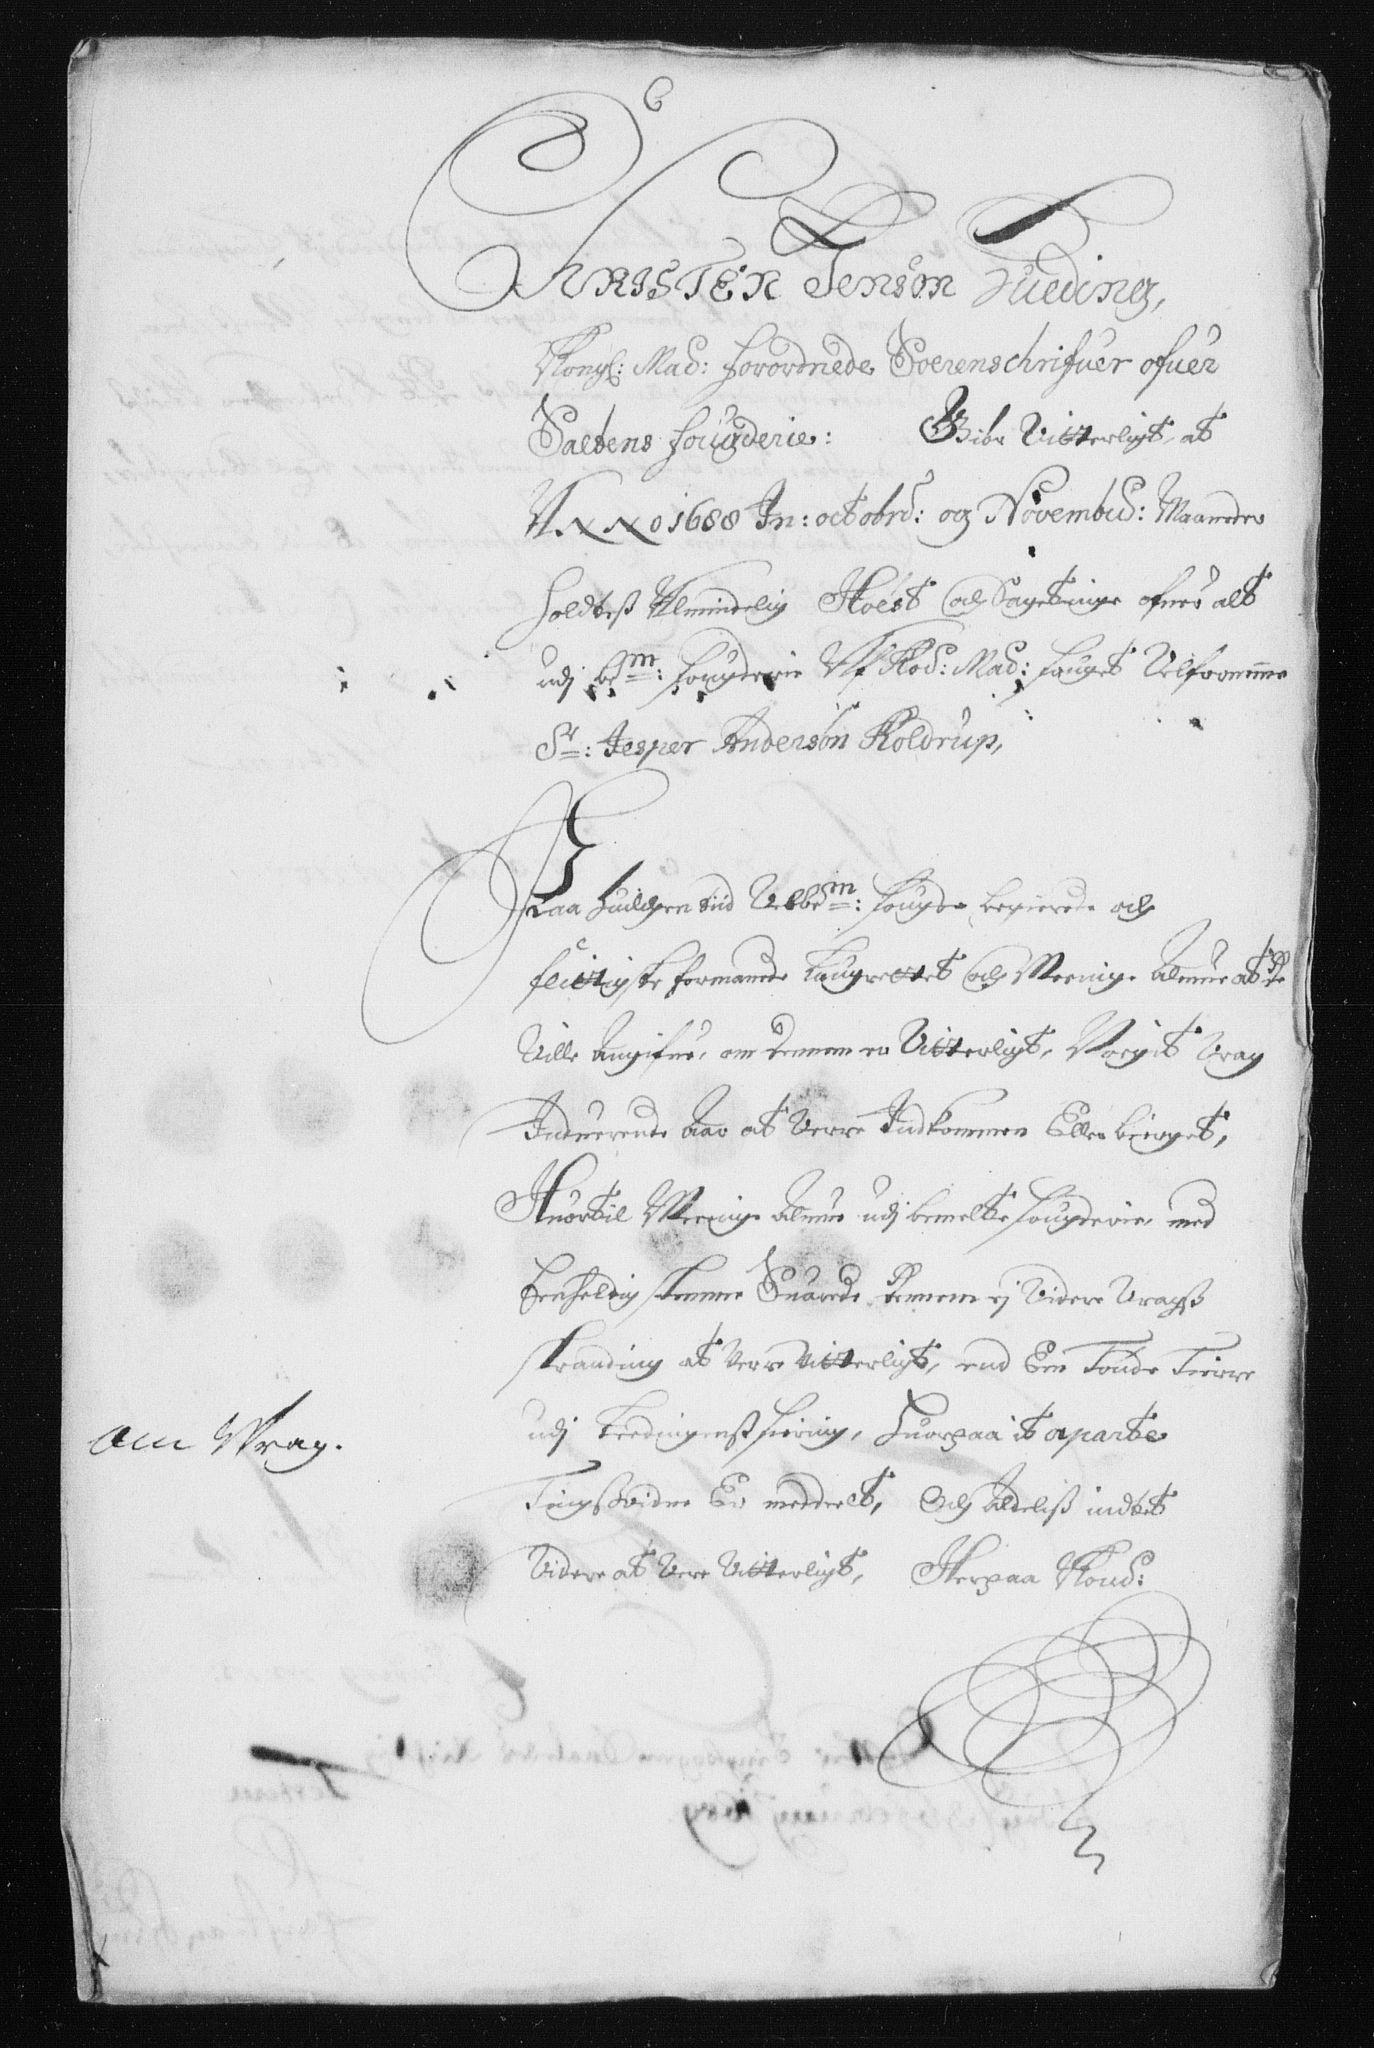 CHRISTEN Jensøn Hueding,
Kongl: May: forordnede Soerenschrifuer ofuer
Saltens fougderie: Giør Vitterligt, at
Anno 1688 In: octobrs: og Novembrs: Maaneder
holdtes Almindelig Høst och Sageting ofuer alt
udj bem: fougderie Af Kos: Mas: fouget Velfornemme
Sr: Jesper Andersøn Koldrup,
Paa huilchen tiid Velbem: fouget begierede och
flitigste formanede Laugrettet och Meenige Almue at de
Ville Angifue, om dennem er Vitterligt, Noegit Vrag
Induerende Aar at Verre Indkommen Eller bierget,
Huortil Meenige Almue udj bemelte fougderie, med
Eenholdig stemme Suarede dennem ej Videre Vragß
stranding at Verre Vitterligt, end Een Tønde Tierre
udj Leedingens fiering, Huorpaa it aparte
Tingsvidne Er meddeelt, Och Aldeliß indtet
Videre at Vere Vitterligt, Herpaa Koud:
Om Wrag.